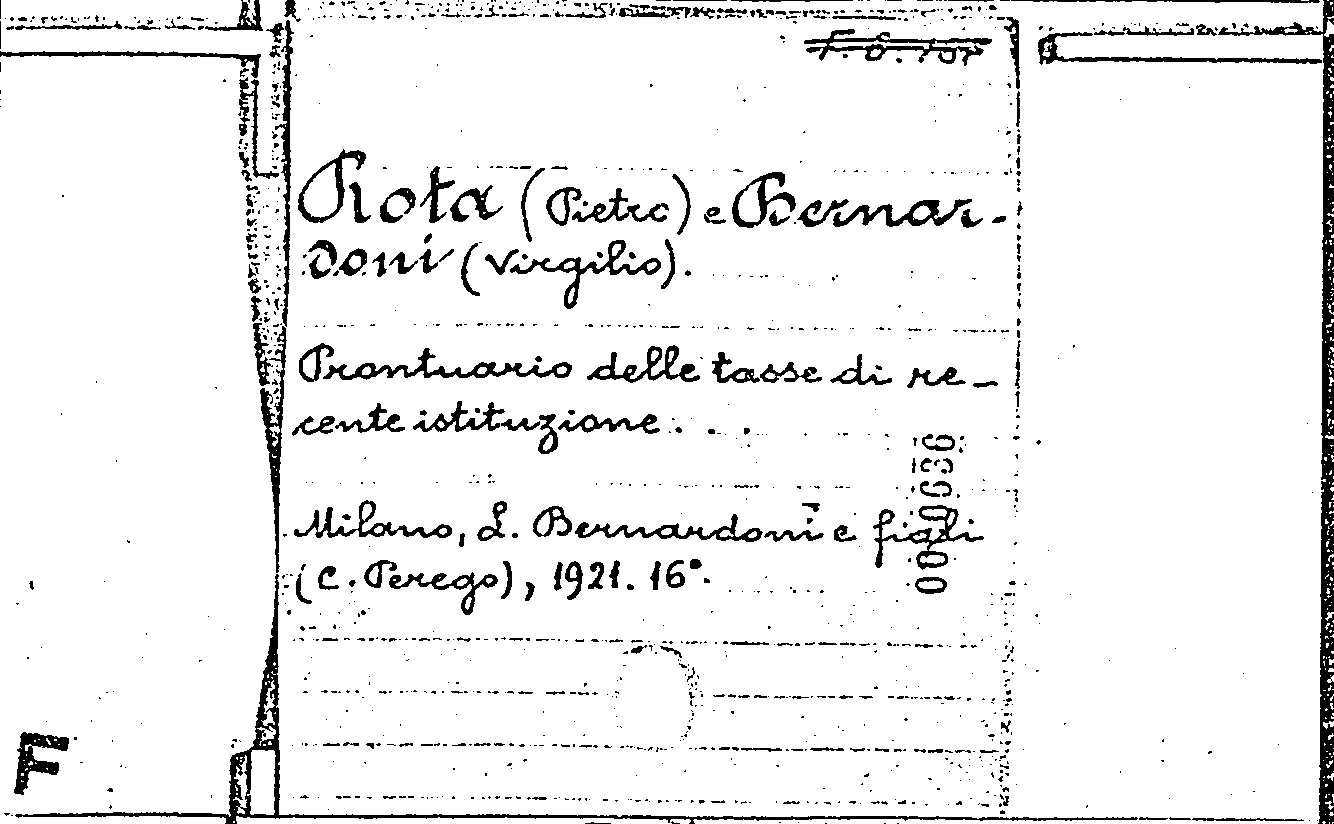 Rota (Pietro) e Bernar-
doni (Virgilio).
Prontuario delle tasse di re-
cente istituzione . . .
Milano, L. Bernardoni e figli
(C. Perego), 1921. 16°.
F